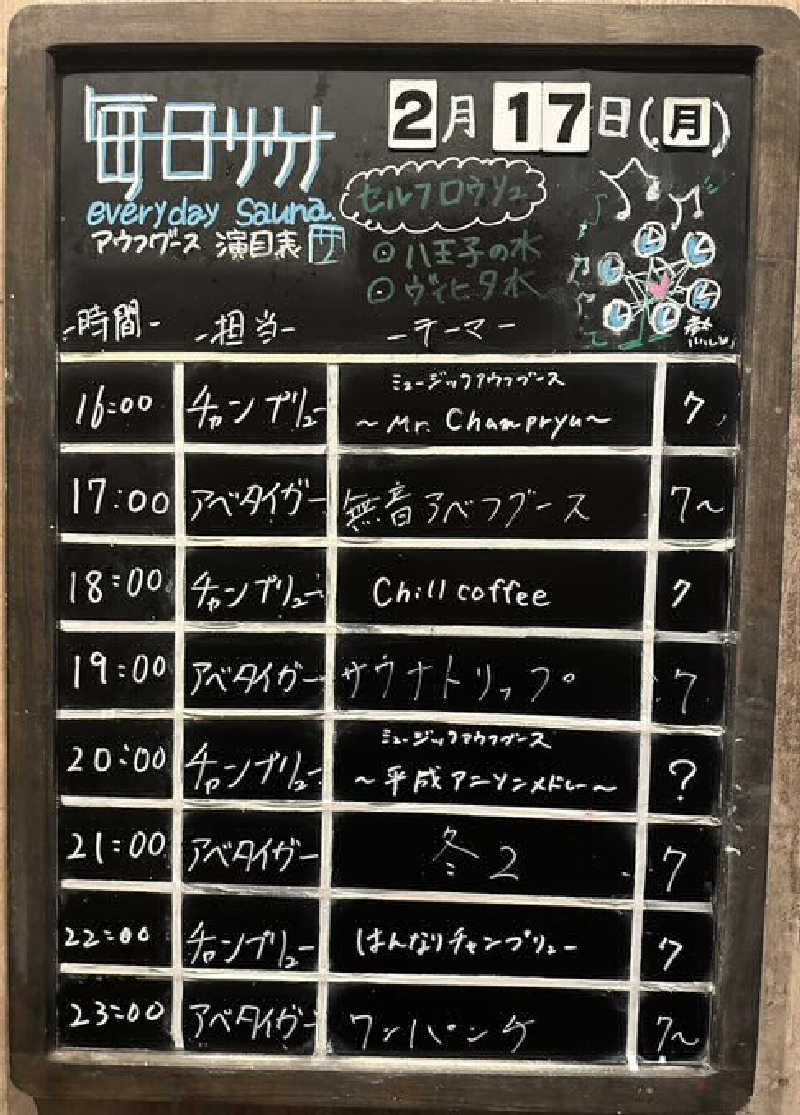 毎日サウナ
2月17日(月)
everyday Sauna.
アウフグース 演目表
セルフロウリュ
⊙八王子の水
⊙ヴィヒタ水
-時間- -担当- -テーマ-
16:00 チャンプリュー ミュージックアウフグース
~Mr. Champryu~ 7
17:00 アベタイガー 無音アベフグース 7~
18:00 チャンプリュー Chill coffee 7
19:00 アベタイガー サウナトリップ。 7
20:00 チャンプリュー ミュージックアウフグース
~平成アニソンメドレー~ ?
21:00 アベタイガー 冬2 7
22:00 チャンプリュー はんなりチャンプリュー 7
23:00 アベタイガー ワンパンケ 7~